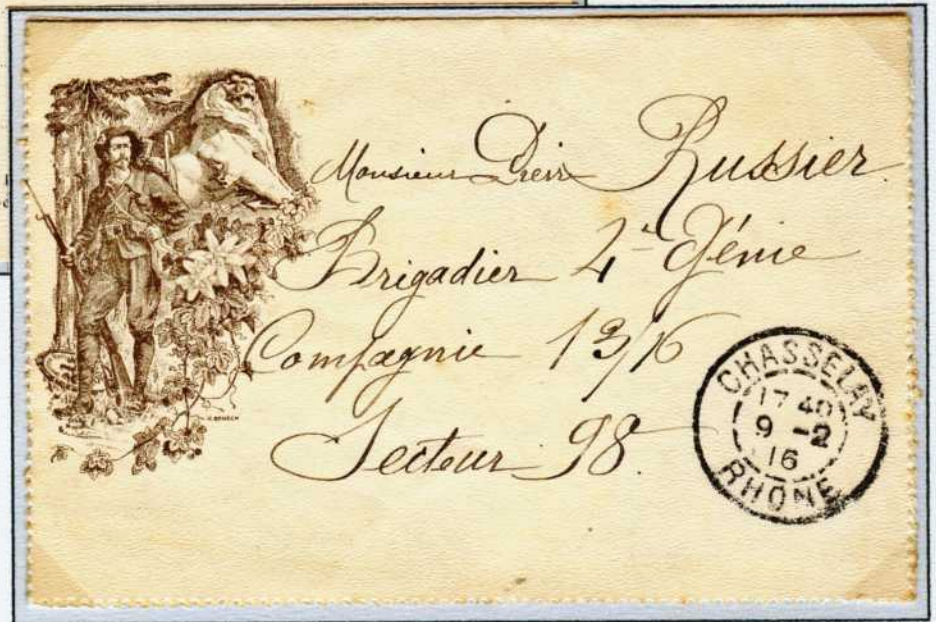 Monsieur Pierre Russier
Brigadier 4e Génie
Compagnie 13/6
Secteur 98.
CHASSELAY
17 40
9 -2
16
RHÔNE